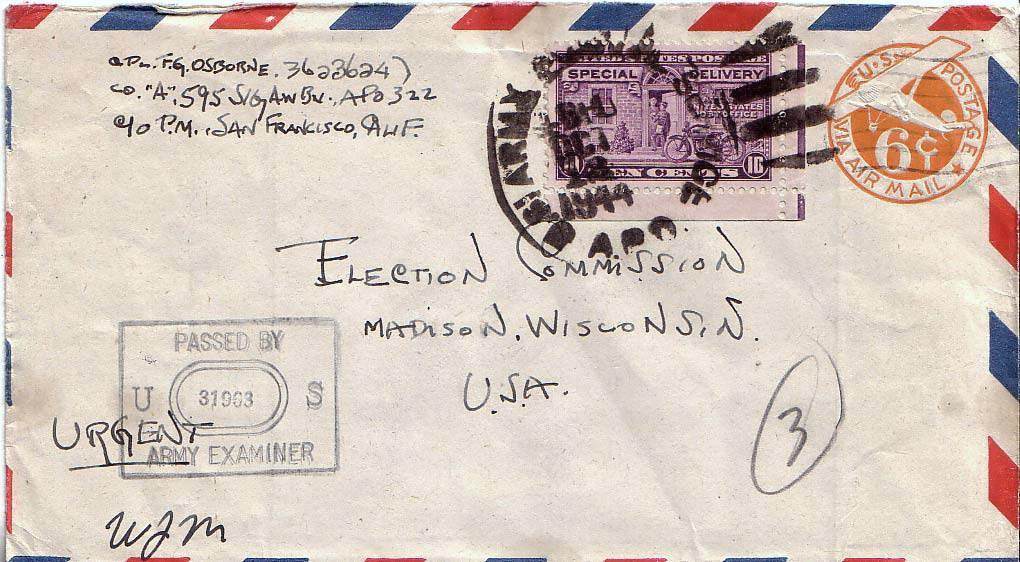 CPL. F.G. OSBORNE. 36236247
CO. "A", 595 SIG AW BN. APO 322
C/O P.M., SAN FRANCISCO, CALIF.
UNITED STATES POSTAGE
SPECIAL DELIVERY
UNITED STATES
POST OFFICE
10 TEN CENTS 10
U.S. POSTAGE
6¢
VIA AIR MAIL
U.S. ARMY
OCT
1944
A.P.O.
ELECTION COMMISSION
MADISON, WISCONSIN.
U.S.A.
PASSED BY
U 31903 S
ARMY EXAMINER
URGENT
WJM
3